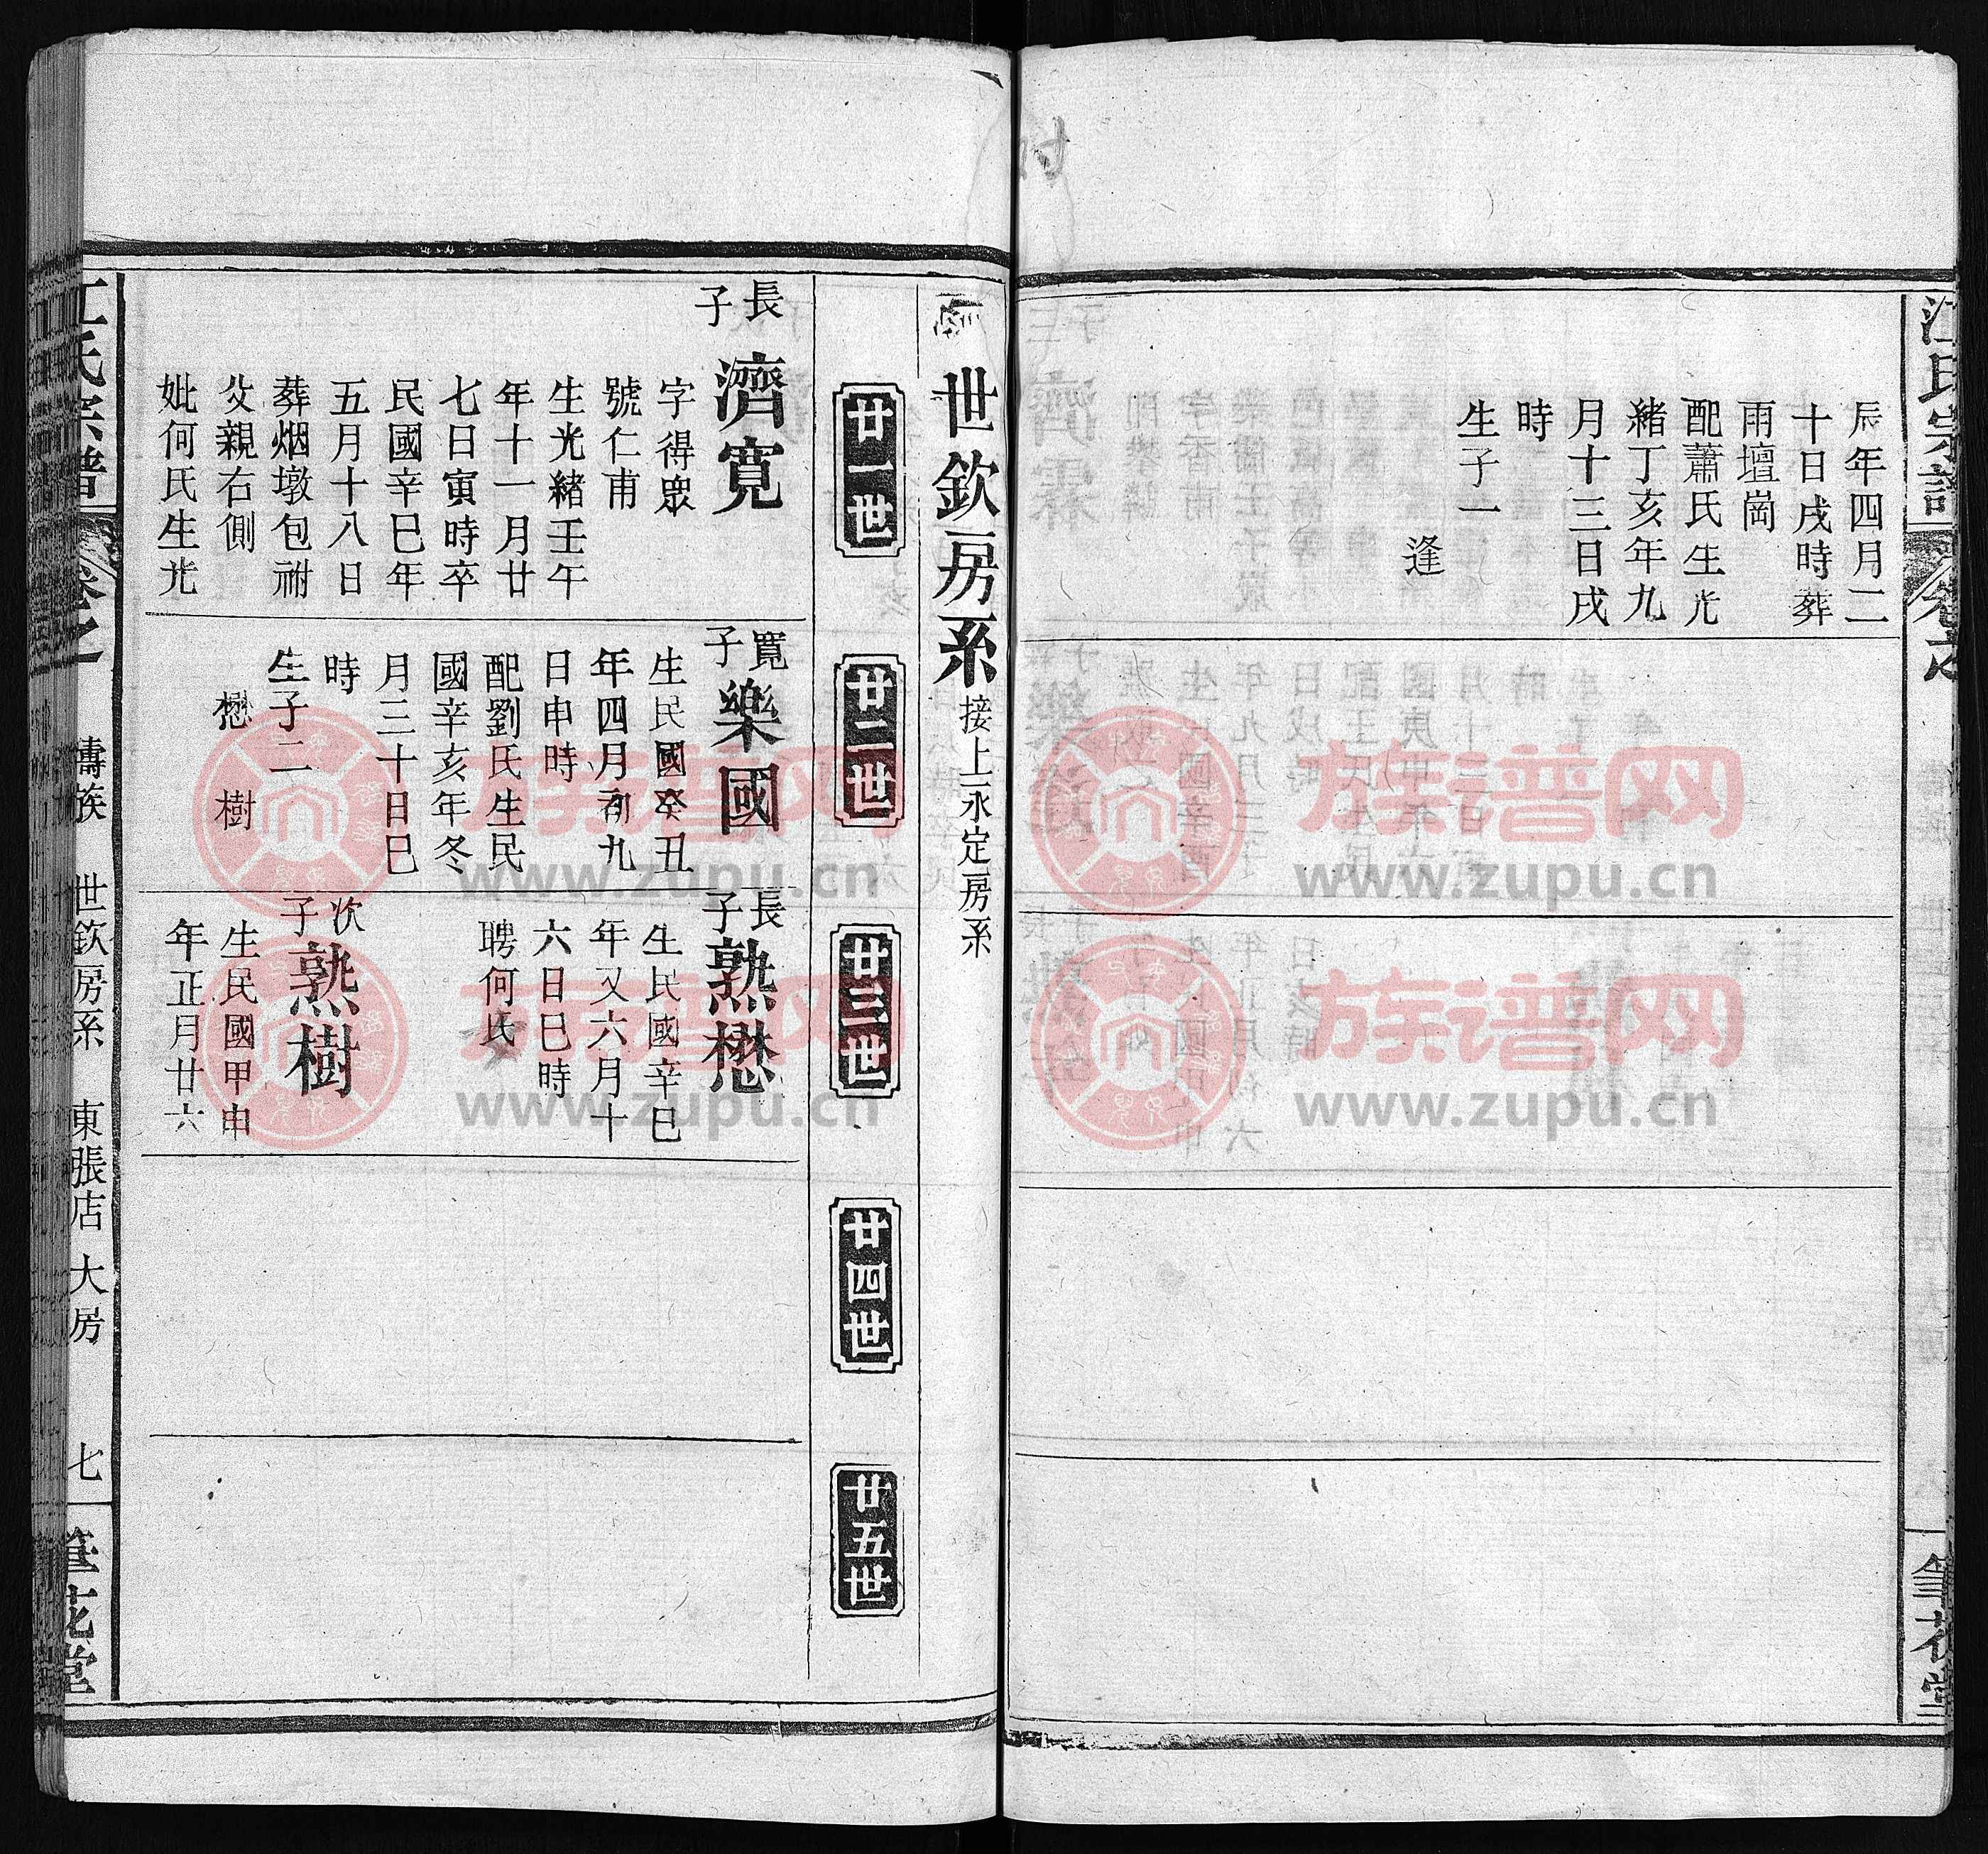 江氏宗譜
筆花堂
辰年四月二
十日戌時葬
雨壇崗
配蕭氏生光
緒丁亥年九
月十三日戌
時
生子一
逢
世欽房系 接上永定房系
廿一世
廿二世
廿三世
廿四世
廿五世
長子 濟寬
字得眾
號仁甫
生光緒壬午
年十一月廿
七日寅時卒
民國辛巳年
五月十八日
葬烟墩包祔
父親右側
妣何氏生光
寬子 樂國
生民國癸丑
年四月初九
日申時
配劉氏生民
國辛亥年冬
月三十日巳
時
生子二
懋 樹
長子 熟懋
生民國辛巳
年又六月十
六日巳時
聘何氏
次子 熟樹
生民國甲申
年正月廿六
江氏宗譜
燾族 世欽房系 東張店大房
七
筆花堂
族谱网
www.zupu.cn
族谱网
www.zupu.cn
族谱网
www.zupu.cn
族谱网
www.zupu.cn